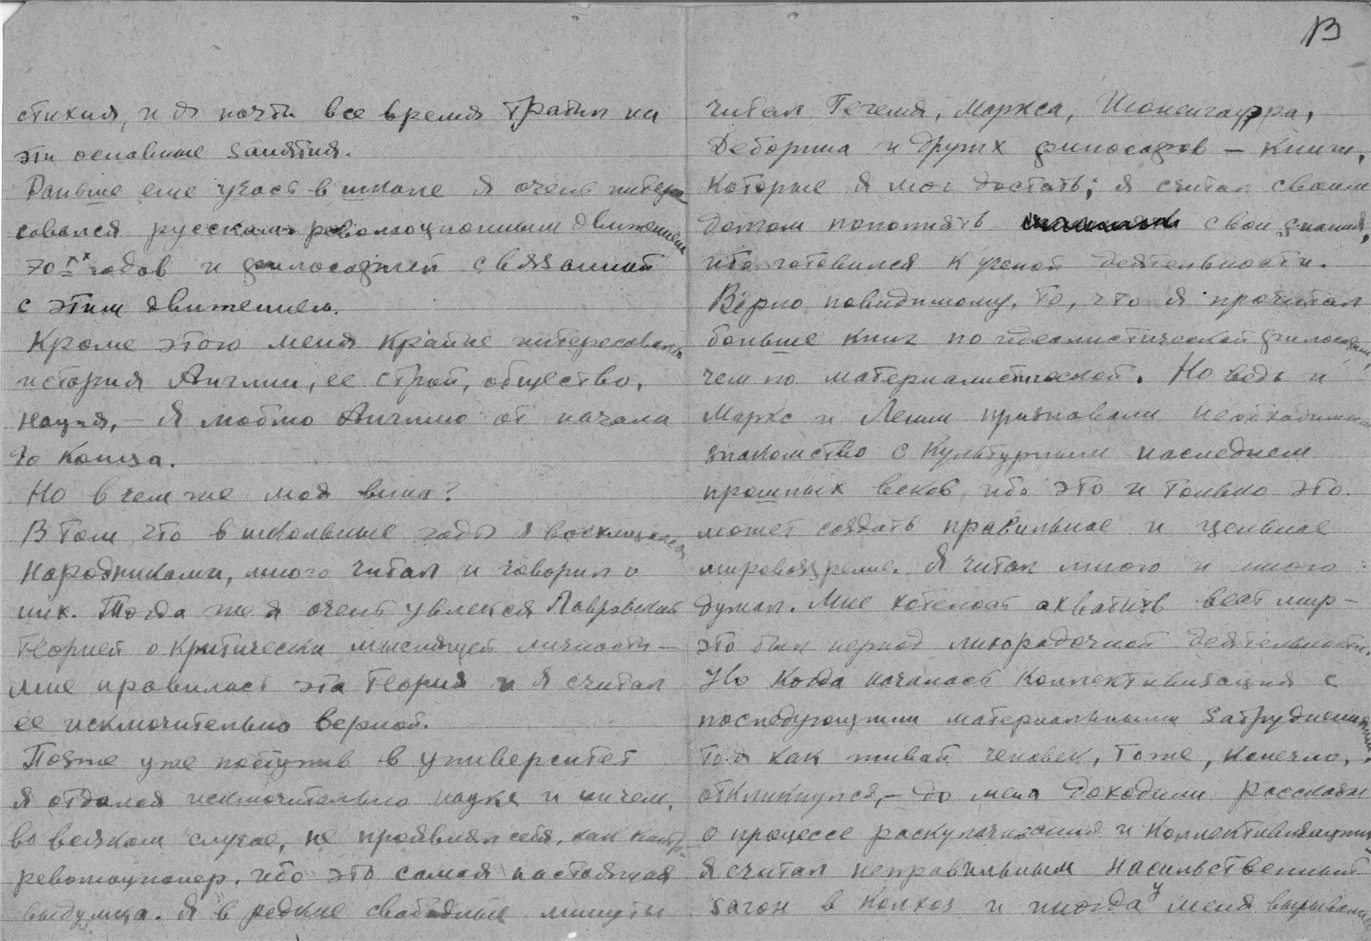 стихия, и я почти все время тратил на
эти основные занятия.
Раньше еще учась в школе я очень интере-
совался русским революционным движением
70-ых годов и философией связанной
с этим движением.
Кроме этого меня крайне интересовала
история Англии, ее строй, общество,
наука, — Я люблю Англию от начала
до конца.
Но в чем же моя вина?
В том что в школьные годы я восхищался
народниками, много читал и говорил о
них. Тогда же я очень увлекся Лавровской
теорией о критически мыслящей личности —
мне нравилась эта теория и я считал
ее исключительно верной.
Позже уже поступив в университет
я отдался исключительно науке и ничем,
во всяком случае, не проявлял себя, как контр-
революционер, ибо это самая настоящая
выдумка. Я в редкие свободные минуты
В
читал Гегеля, Маркса, Шопенгауэра,
Деборина и других философов — книги,
которые я мог достать; я считал своим
долгом пополнять свои знания,
ибо готовился к ученой деятельности.
Верно повидимому, то, что я прочитал
больше книг по идеалистической философии,
чем по материалистической. Но ведь и
Маркс и Ленин признавали необходимым
знакомство с культурным наследием
прошлых веков, ибо это и только это
может создать правильное и цельное
мировоззрение. Я читал много и много
думал. Мне хотелось охватить весь мир —
это был период лихорадочной деятельности.
Но когда началась коллективизация с
последующими материальными затруднениями,
то я как живой человек, тоже, конечно,
откликнулся, — до меня доходили рассказы
о процессе раскулачивания и коллективизации —
я считал неправильным насильственный
загон в колхоз и иногда у меня вырывались